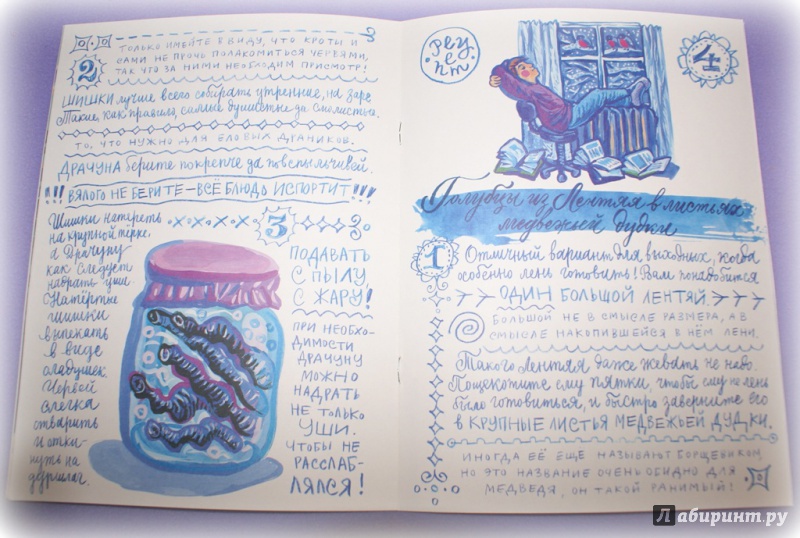 2
ТОЛЬКО ИМЕЙТЕ В ВИДУ, ЧТО КРОТЫ И
САМИ НЕ ПРОЧЬ ПОЛАКОМИТЬСЯ ЧЕРВЯМИ,
ТАК ЧТО ЗА НИМИ НЕОБХОДИМ ПРИСМОТР!
ШИШКИ лучше всего собирать утренние, на заре
Такие, как правило, самые душистые да смолистые.
ТО, ЧТО НУЖНО ДЛЯ ЕЛОВЫХ ДРАНИКОВ.
ДРАЧУНА берите покрепче да повспыльчивей.
!!! ВЯЛОГО НЕ БЕРИТЕ – ВСЁ БЛЮДО ИСПОРТИТ !!!
3
Шишки натереть
на крупной тёрке,
а Драчуну
как следует
надрать уши.
Натёртые
шишки
выпекать
в виде
оладушек.
Червей
слегка
отварить
и отки-
нуть на
дуршлаг.
ПОДАВАТЬ
С ПЫЛУ,
С ЖАРУ!
ПРИ НЕОБХО-
ДИМОСТИ
ДРАЧУНУ
МОЖНО
НАДРАТЬ
НЕ ТОЛЬКО
УШИ.
ЧТОБЫ НЕ
РАССЛАБ-
ЛЯЛСЯ!
Рецепт
4
Голубцы из Лентяя в листьях
медвежьей дудки
1
Отличный вариант для выходных, когда
особенно лень готовить! Вам понадобится
ОДИН БОЛЬШОЙ ЛЕНТЯЙ.
БОЛЬШОЙ НЕ В СМЫСЛЕ РАЗМЕРА, А В
СМЫСЛЕ НАКОПИВШЕЙСЯ В НЁМ ЛЕНИ.
Такого Лентяя даже жевать не надо.
Пощекотите ему пятки, чтобы ему не лень
было готовиться, и быстро заверните его
в КРУПНЫЕ ЛИСТЬЯ МЕДВЕЖЬЕЙ ДУДКИ.
ИНОГДА ЕЁ ЕЩЕ НАЗЫВАЮТ БОРЩЕВИКОМ,
НО ЭТО НАЗВАНИЕ ОЧЕНЬ ОБИДНО ДЛЯ
МЕДВЕДЯ, ОН ТАКОЙ РАНИМЫЙ!
Лабиринт.ру